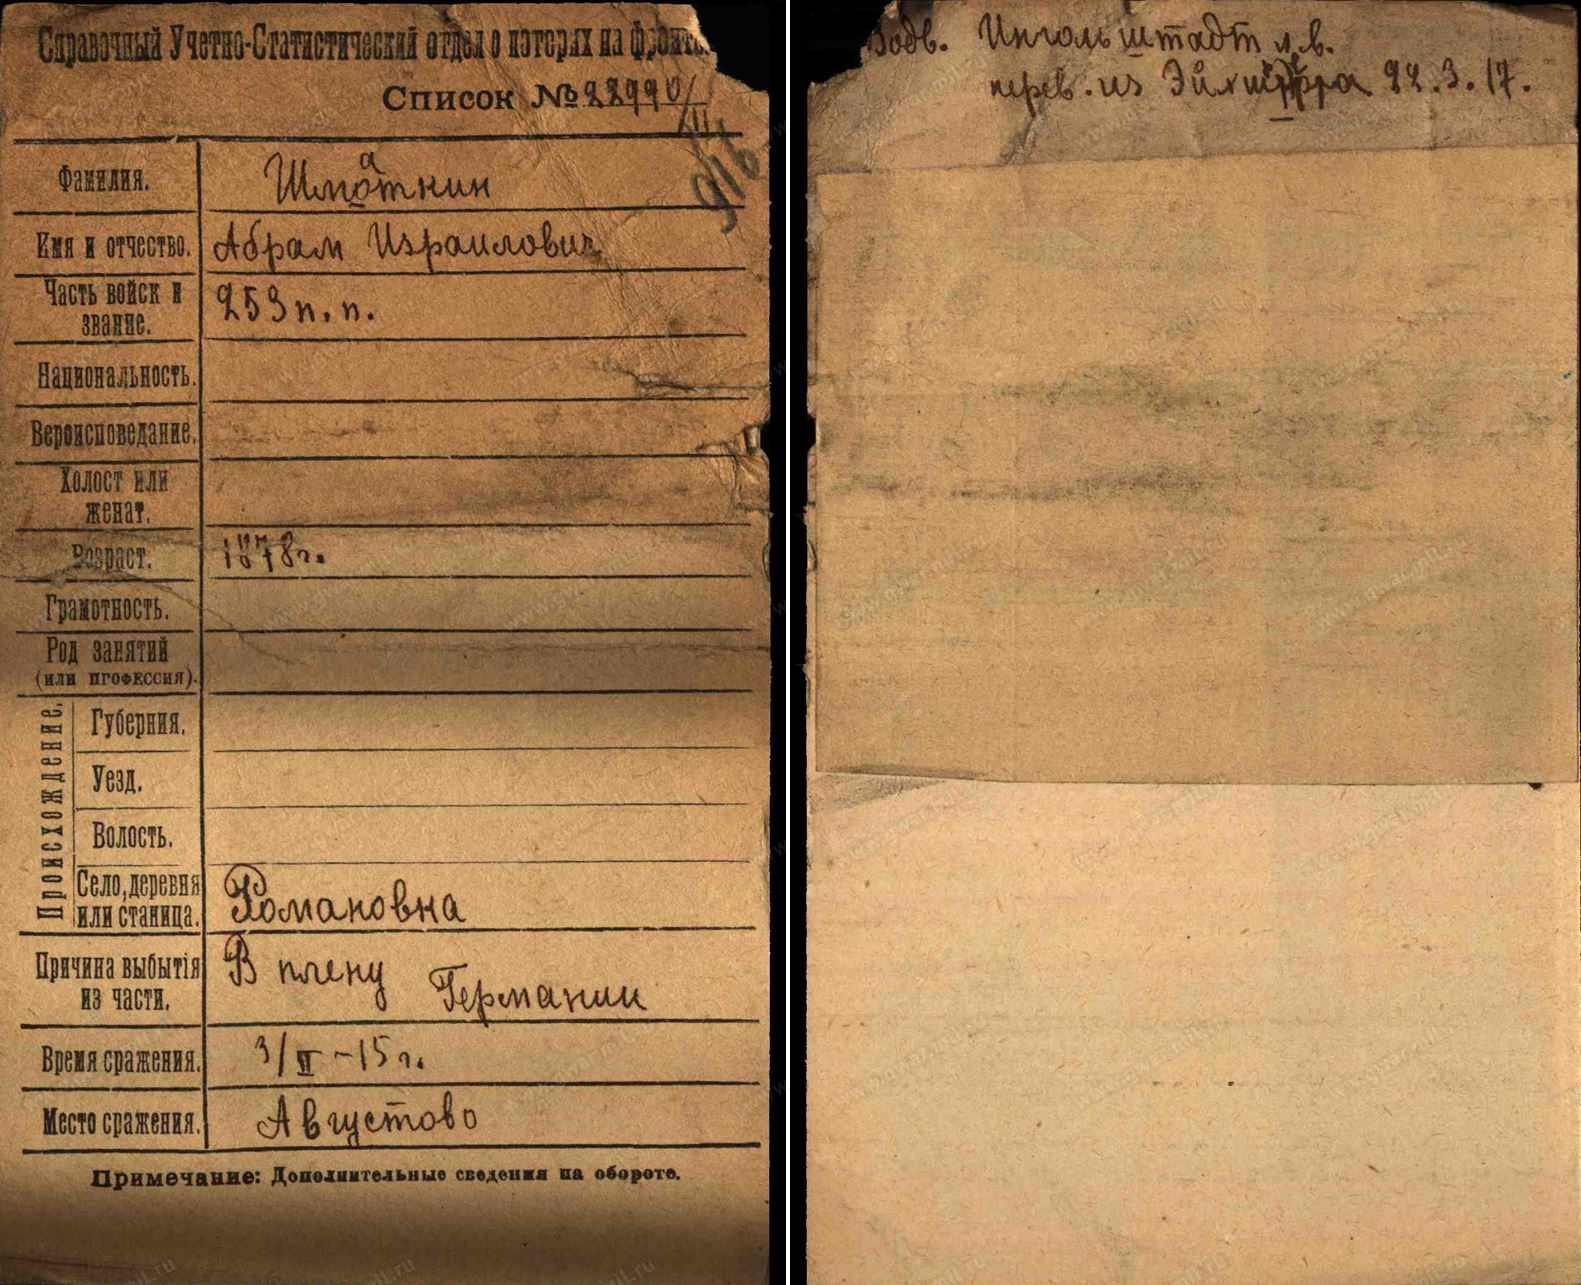 Справочный Учетно-Статистический отдел о потерях на фронта
Список № 22990/II
916
Фамилия. Шмоткин
а
Имя и отчество. Абрам Израилович
Часть войск и звание. 253 п. п.
Национальность.
Вероисповедание.
Холост или женат.
Возраст. 1878 г.
Грамотность.
Род занятий (или профессия).
Происхождение.
Губерния.
Уезд.
Волость.
Село, деревня или станица. Романовка
Причина выбытія из части. В плену Германии
Время сражения. 3/II-15 г.
Место сражения. Августово
Примечание: Дополнительные сведения на обороте.
Ингольштадт л. в.
перев. из 22.3.17.